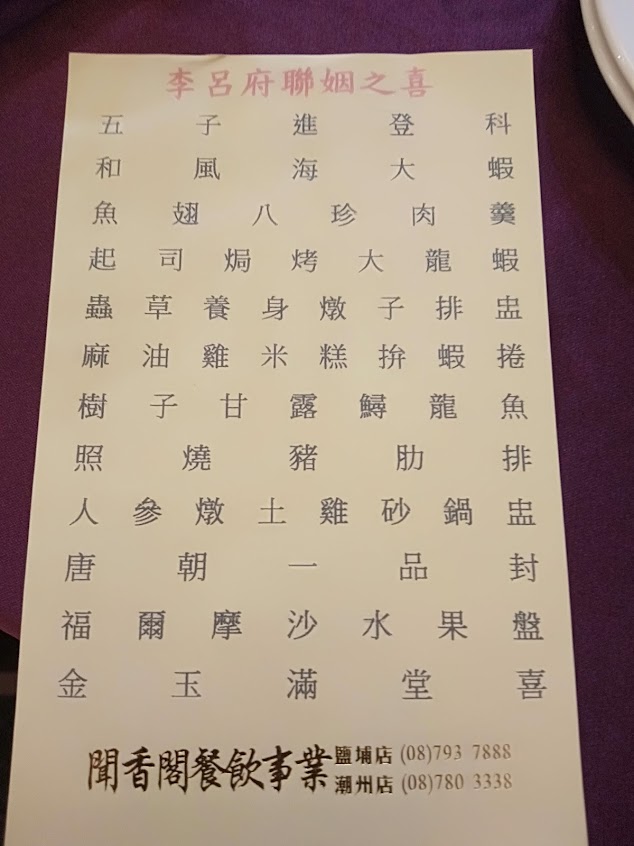 李呂府聯姻之喜
五子進登科
和風海大蝦
魚翅八珍肉羹
起司焗烤大龍蝦
蟲草養身燉子排盅
麻油雞米糕拚蝦捲
樹子甘露鱘龍魚
照燒豬肋排
人參燉土雞砂鍋盅
唐朝一品封
福爾摩沙水果盤
金玉滿堂喜
聞香閣餐飲事業
鹽埔店 (08)793 7888
潮州店 (08)780 3338